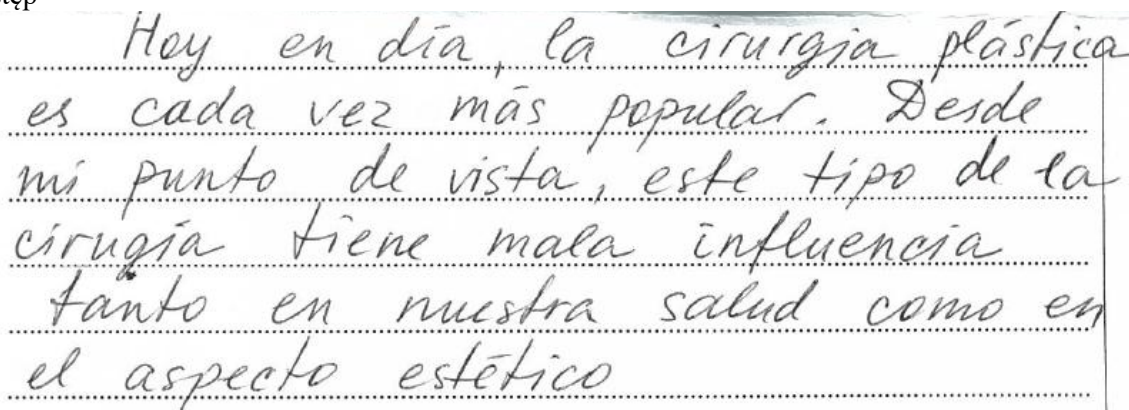 Hoy en día, la cirurgia plástica
es cada vez más popular. Desde
mi punto de vista, este tipo de la
cirugía tiene mala influencia
tanto en nuestra salud como en
el aspecto estético